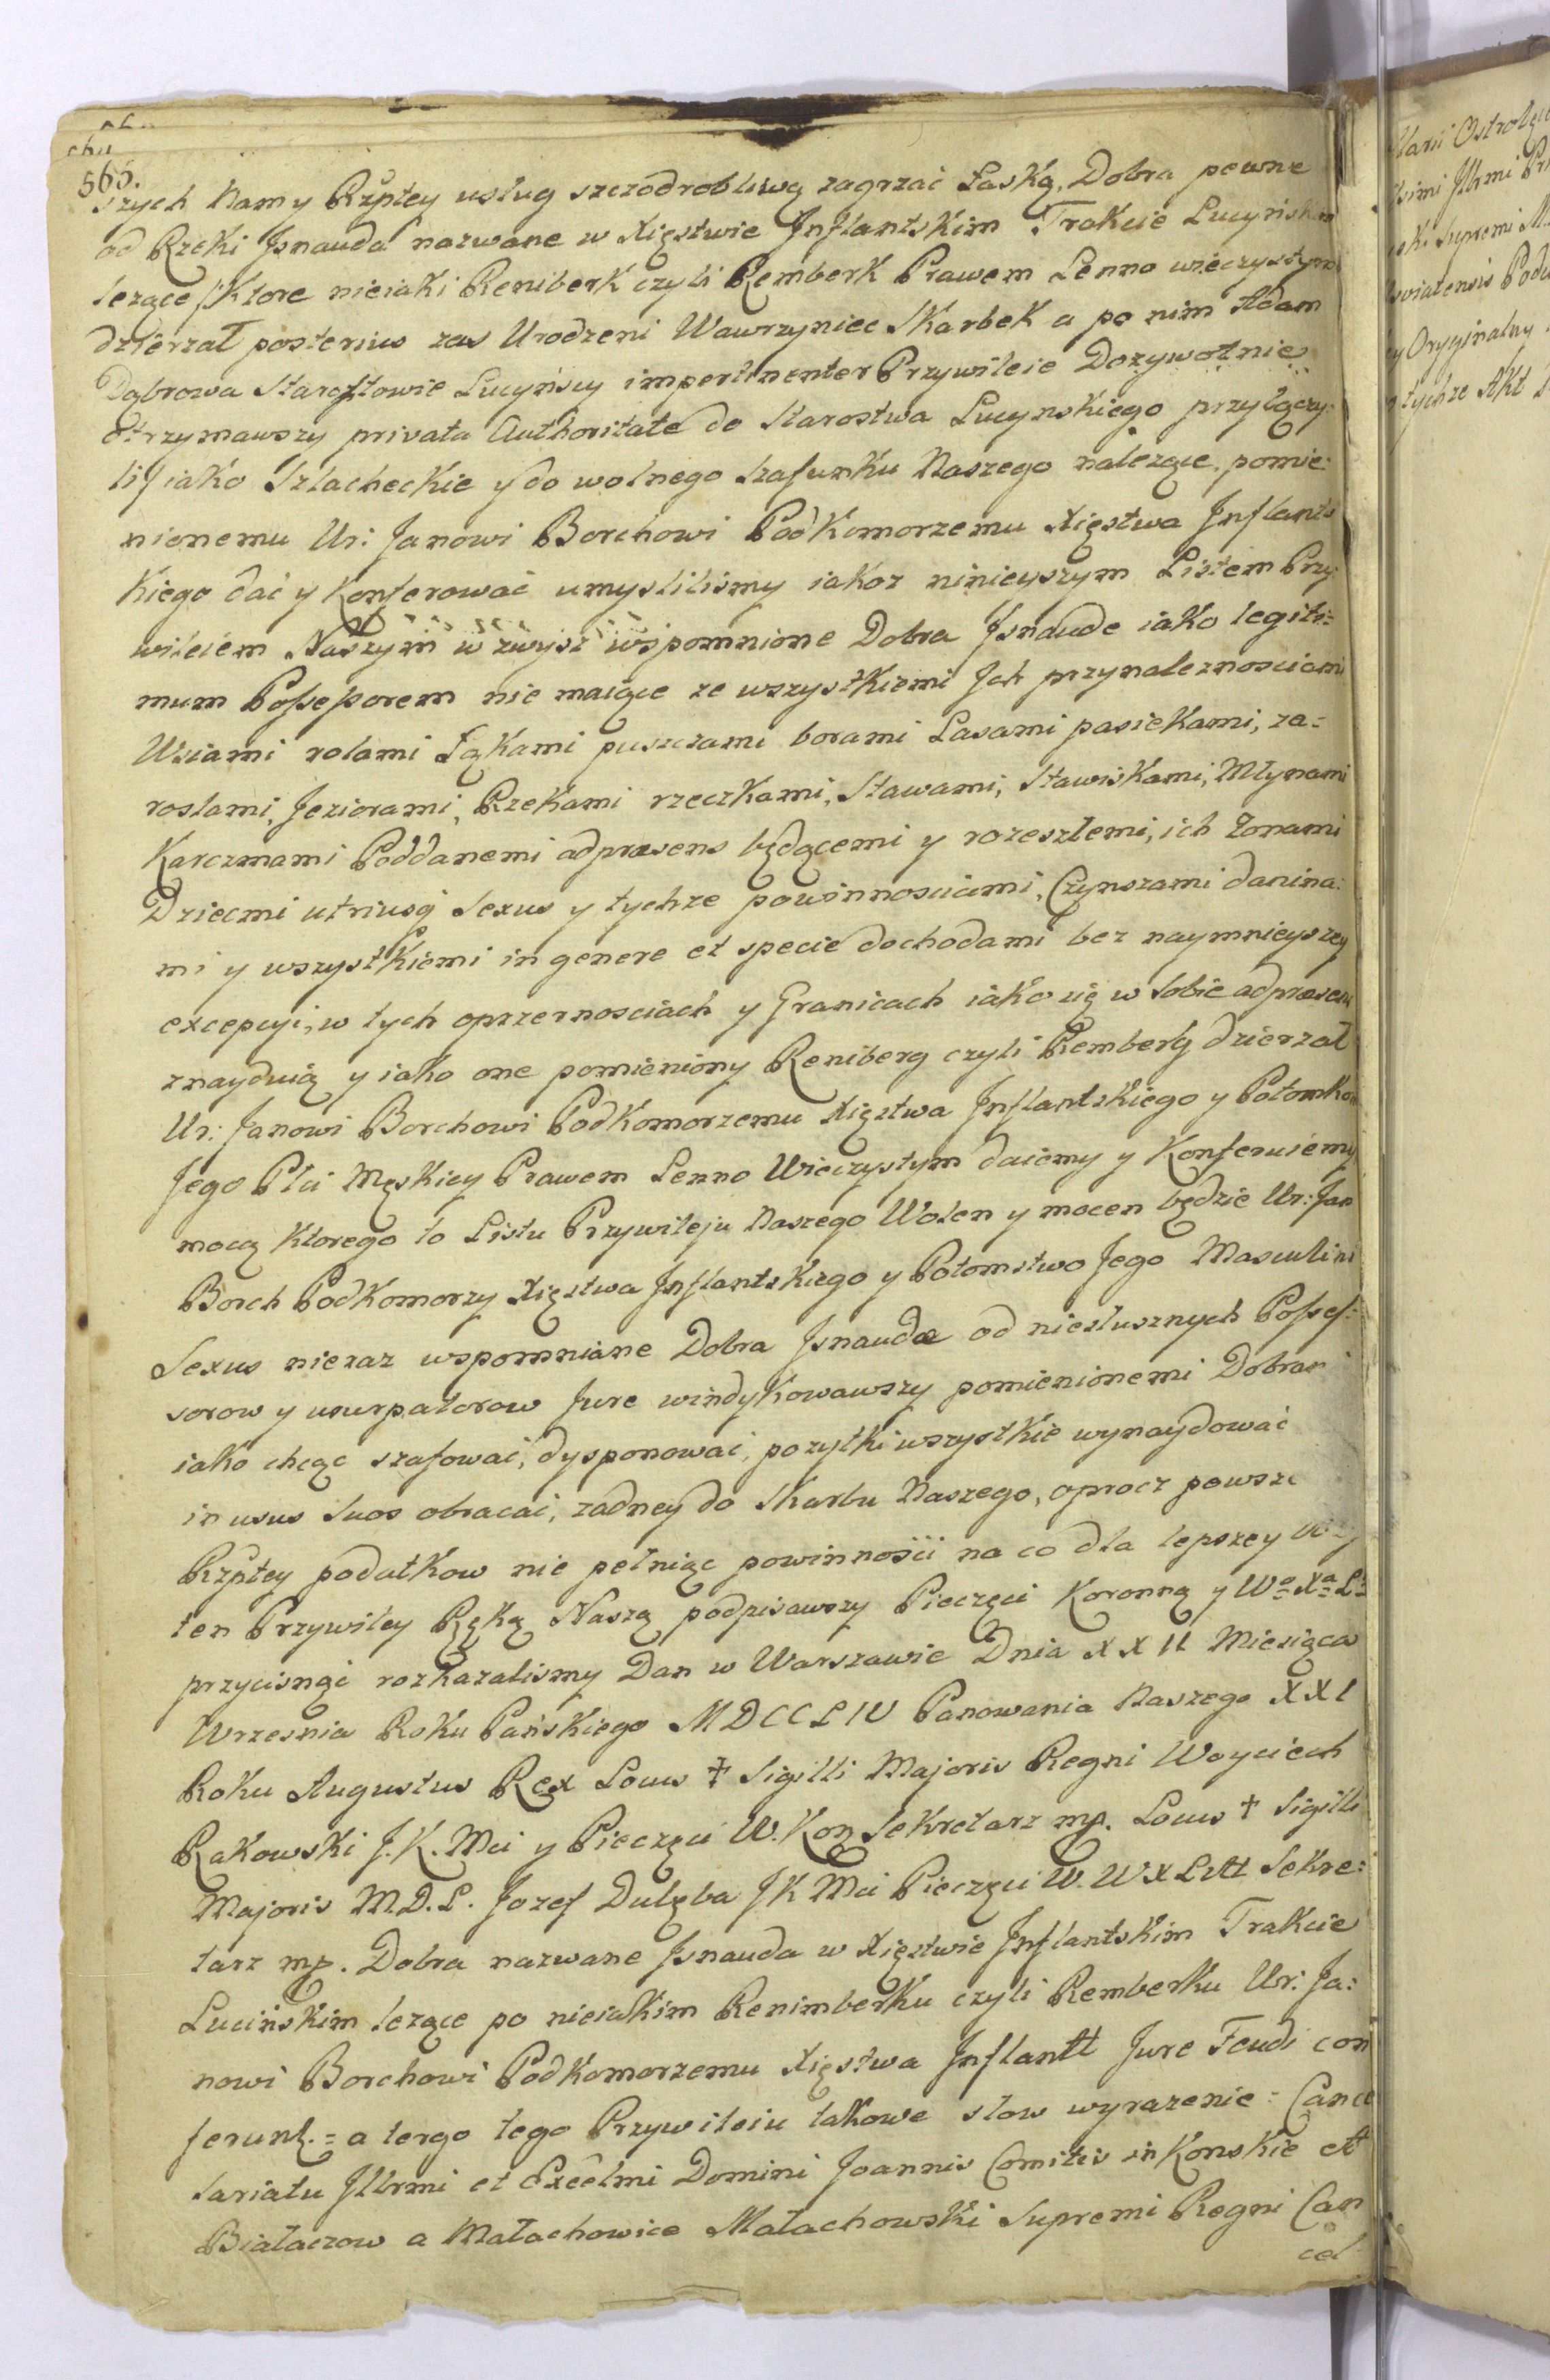 565.
szych Nam y Rzptey usług szczodrobliwą zagrzać Łaską. Dobra pewne
od Rzeki Jsnauda nazwane w Xięstwie Jnflantskim Trakcie Lucyńskim
leżące /: Ktore nieiaki Reniberk czyli Remberk Prawem Lenno wieczystym
dzierzał posterius zas Urodzeni Wawrzyniec Skarbek a po nim Adam
Dąbrowa Starostowie Lucyńscy impertinenter Przywileie Dozywotnie
otrzymawszy privata Authoritate do Starostwa Lucynskiego przyłączy:
li/ iako Szlacheckie y do wolnego szafunku Naszego nalezące, pomie:
nionemu Ur: Janowi Borchowi PodKomorzemu Xięstwa Jnflants
Kiego dać y Konferować umyslilismy iakoz ninieyszym Listem Przy
wileiem Naszym w zwysz wspomnione Dobra Jsnaude iako legiti:
mum Possessorem nie maiące ze wszystkiemi Jch przynaleznosciami
Wsiami rolami Łąkami puszczami borami Lasami pasiekami, za=
roslami, Jeziorami, Rzekami rzeczkami, Stawami, Stawiskami, Młynami
Karczmami Poddanemi adpræsens będącemi y rozeszłemi, ich Zonami
Dziecmi utriusq Sexus y tychze powinnosciami, Czynszami danina:
mi y wszystkiemi in genere et specie dochodami bez naymnieyszey
excepcyi, w tych oprzernosciach y Granicach iako się w sobie adpræsens
znayduią y iako one pomieniony Reniberg czyli Remberg dzierzał
Ur: Janowi Borchowi PodKomorzemu Xięstwa Jnflantskiego y Potomkom
Jego Płci Męskiey Prawem Lenno Wieczystym daiemy y Konferuiemy
mocą Ktorego to Listu Przywileju Naszego Wolen y mocen będzie Ur: Jan
Borch PodKomorzy Xięstwa Jnflantskiego y Potomstwo Jego Masculini
Sexus nieraz wspomniane Dobra Jsnaudæ od niesłusznych Posses:
sorow y usurpatorow Jure windykowawszy pomienionemi Dobrami
iako chcąc szafować, dysponować, pozytki wszystkie wynaydować
in usus suos obracać, zadney do Skarbu Naszego, oprocz
Rzptey podatkow nie pełniąc powinnosci na co dla lepszey
ten Przywiley Ręką Naszą podpisawszy Pieczęci Koronną y Wo Xa Lo
przycisnąć rozkazalismy Dan w Warszawie Dnia XXII Miesiąca
Wrzesnia Roku Pańskiego MDCCLIV Panowania Naszego XXI
Roku Augustus Rex Locus ‡ Sigilli Majoris Regni Woyciech
Rakowski J. K. Mci y Pieczęci W. Kon Sekretarz mp. Locus † Sigilli
Majoris M.D.L. Jozef Dulęba JK Mci Pieczęci W. WXLitt Sekre:
tarz mp. Dobra nazwane Jsnauda w Xięstwie Jnflantskim Trakcie
Lucińskim lezące po nieiakim Renimberku czyli Remberku Ur: Ja:
nowi Borchowi PodKomorzemu Xięstwa Jnflantt Jure Feudi con
ferunt. = a tergo tego Przywileiu takowe słow wyrazenie: Cance
lariatu Jllrmi et Excelmi Domini Joannis Comitis in Konskie et
Białaczow a Małachowice Małachowski Supremi Regni Can
cel